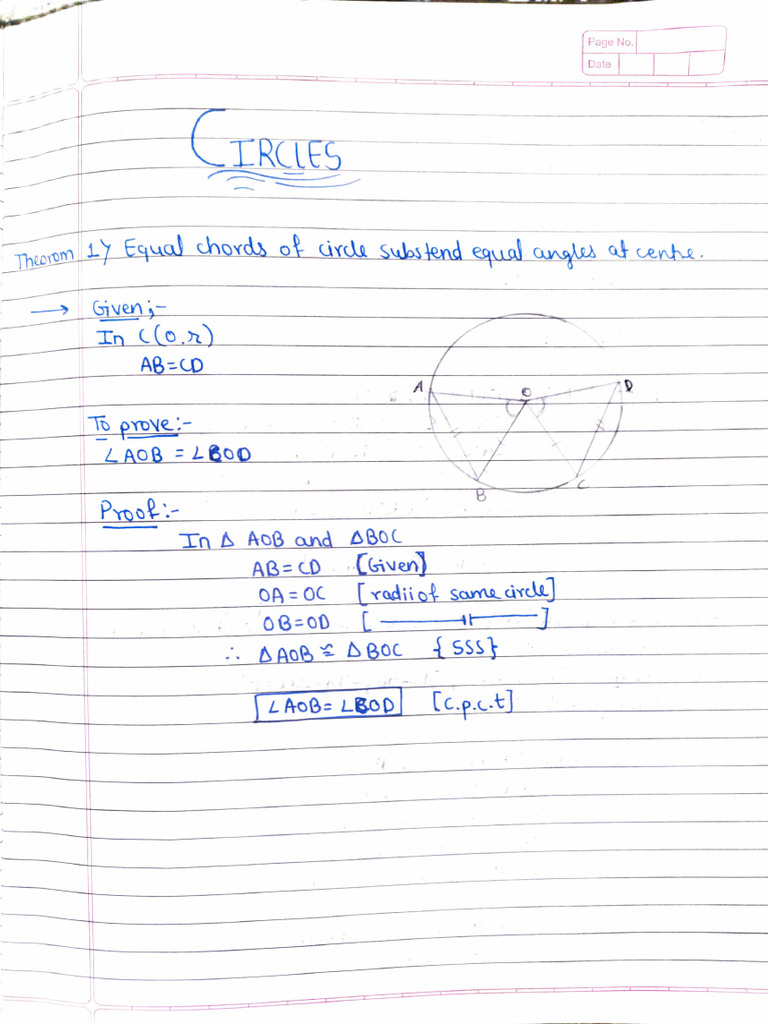 Page No.
Date
CIRCLES
Theorom 1) Equal chords of circle substend equal angles at centre.
→ Given;-
In C(O,r)
AB=CD
A O D
To prove:-
∠AOB = ∠COD
B C
Proof:-
In Δ AOB and ΔBOC
AB=CD [Given]
OA=OC [radii of same circle]
OB=OD [ —— 〃 —— ]
∴ ΔAOB ≅ ΔBOC {SSS}
∠AOB = ∠COD [c.p.c.t]